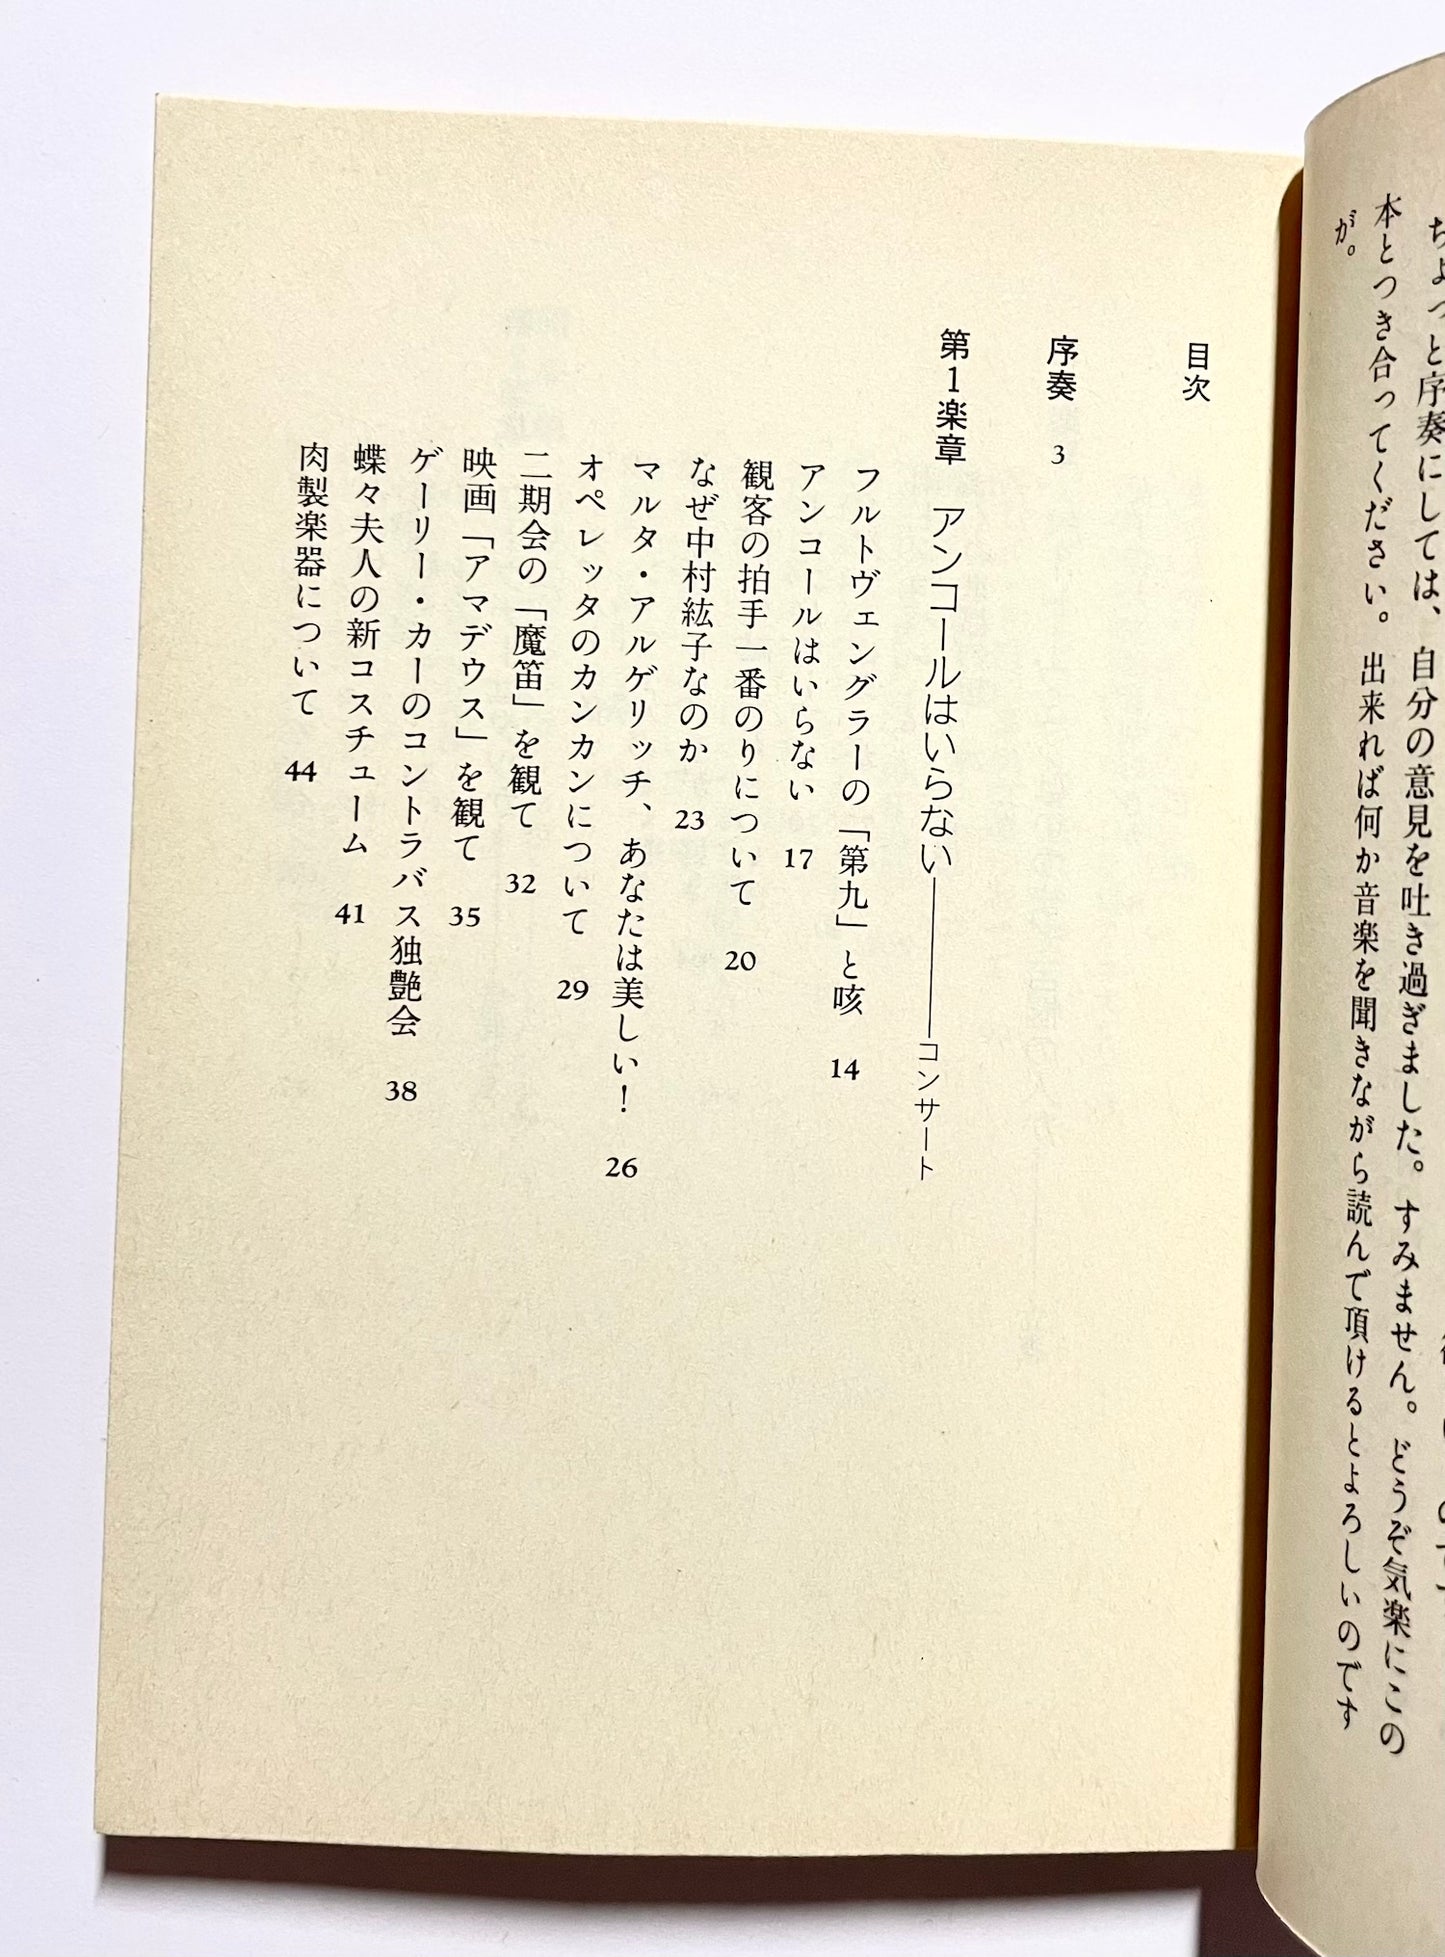 ちょっと序奏にしては、自分の意見を吐き過ぎました。すみません。どうぞ気楽にこの
本とつき合ってください。出来れば何か音楽を聞きながら読んで頂けるとよろしいのです
が。
目次
序奏 3
第1楽章 アンコールはいらない――コンサート
フルトヴェングラーの「第九」と咳 14
アンコールはいらない 17
観客の拍手一番のりについて 20
なぜ中村紘子なのか 23
マルタ・アルゲリッチ、あなたは美しい! 26
オペレッタのカンカンについて 29
二期会の「魔笛」を観て 32
映画「アマデウス」を観て 35
ゲーリー・カーのコントラバス独艶会 38
蝶々夫人の新コスチューム 41
肉製楽器について 44